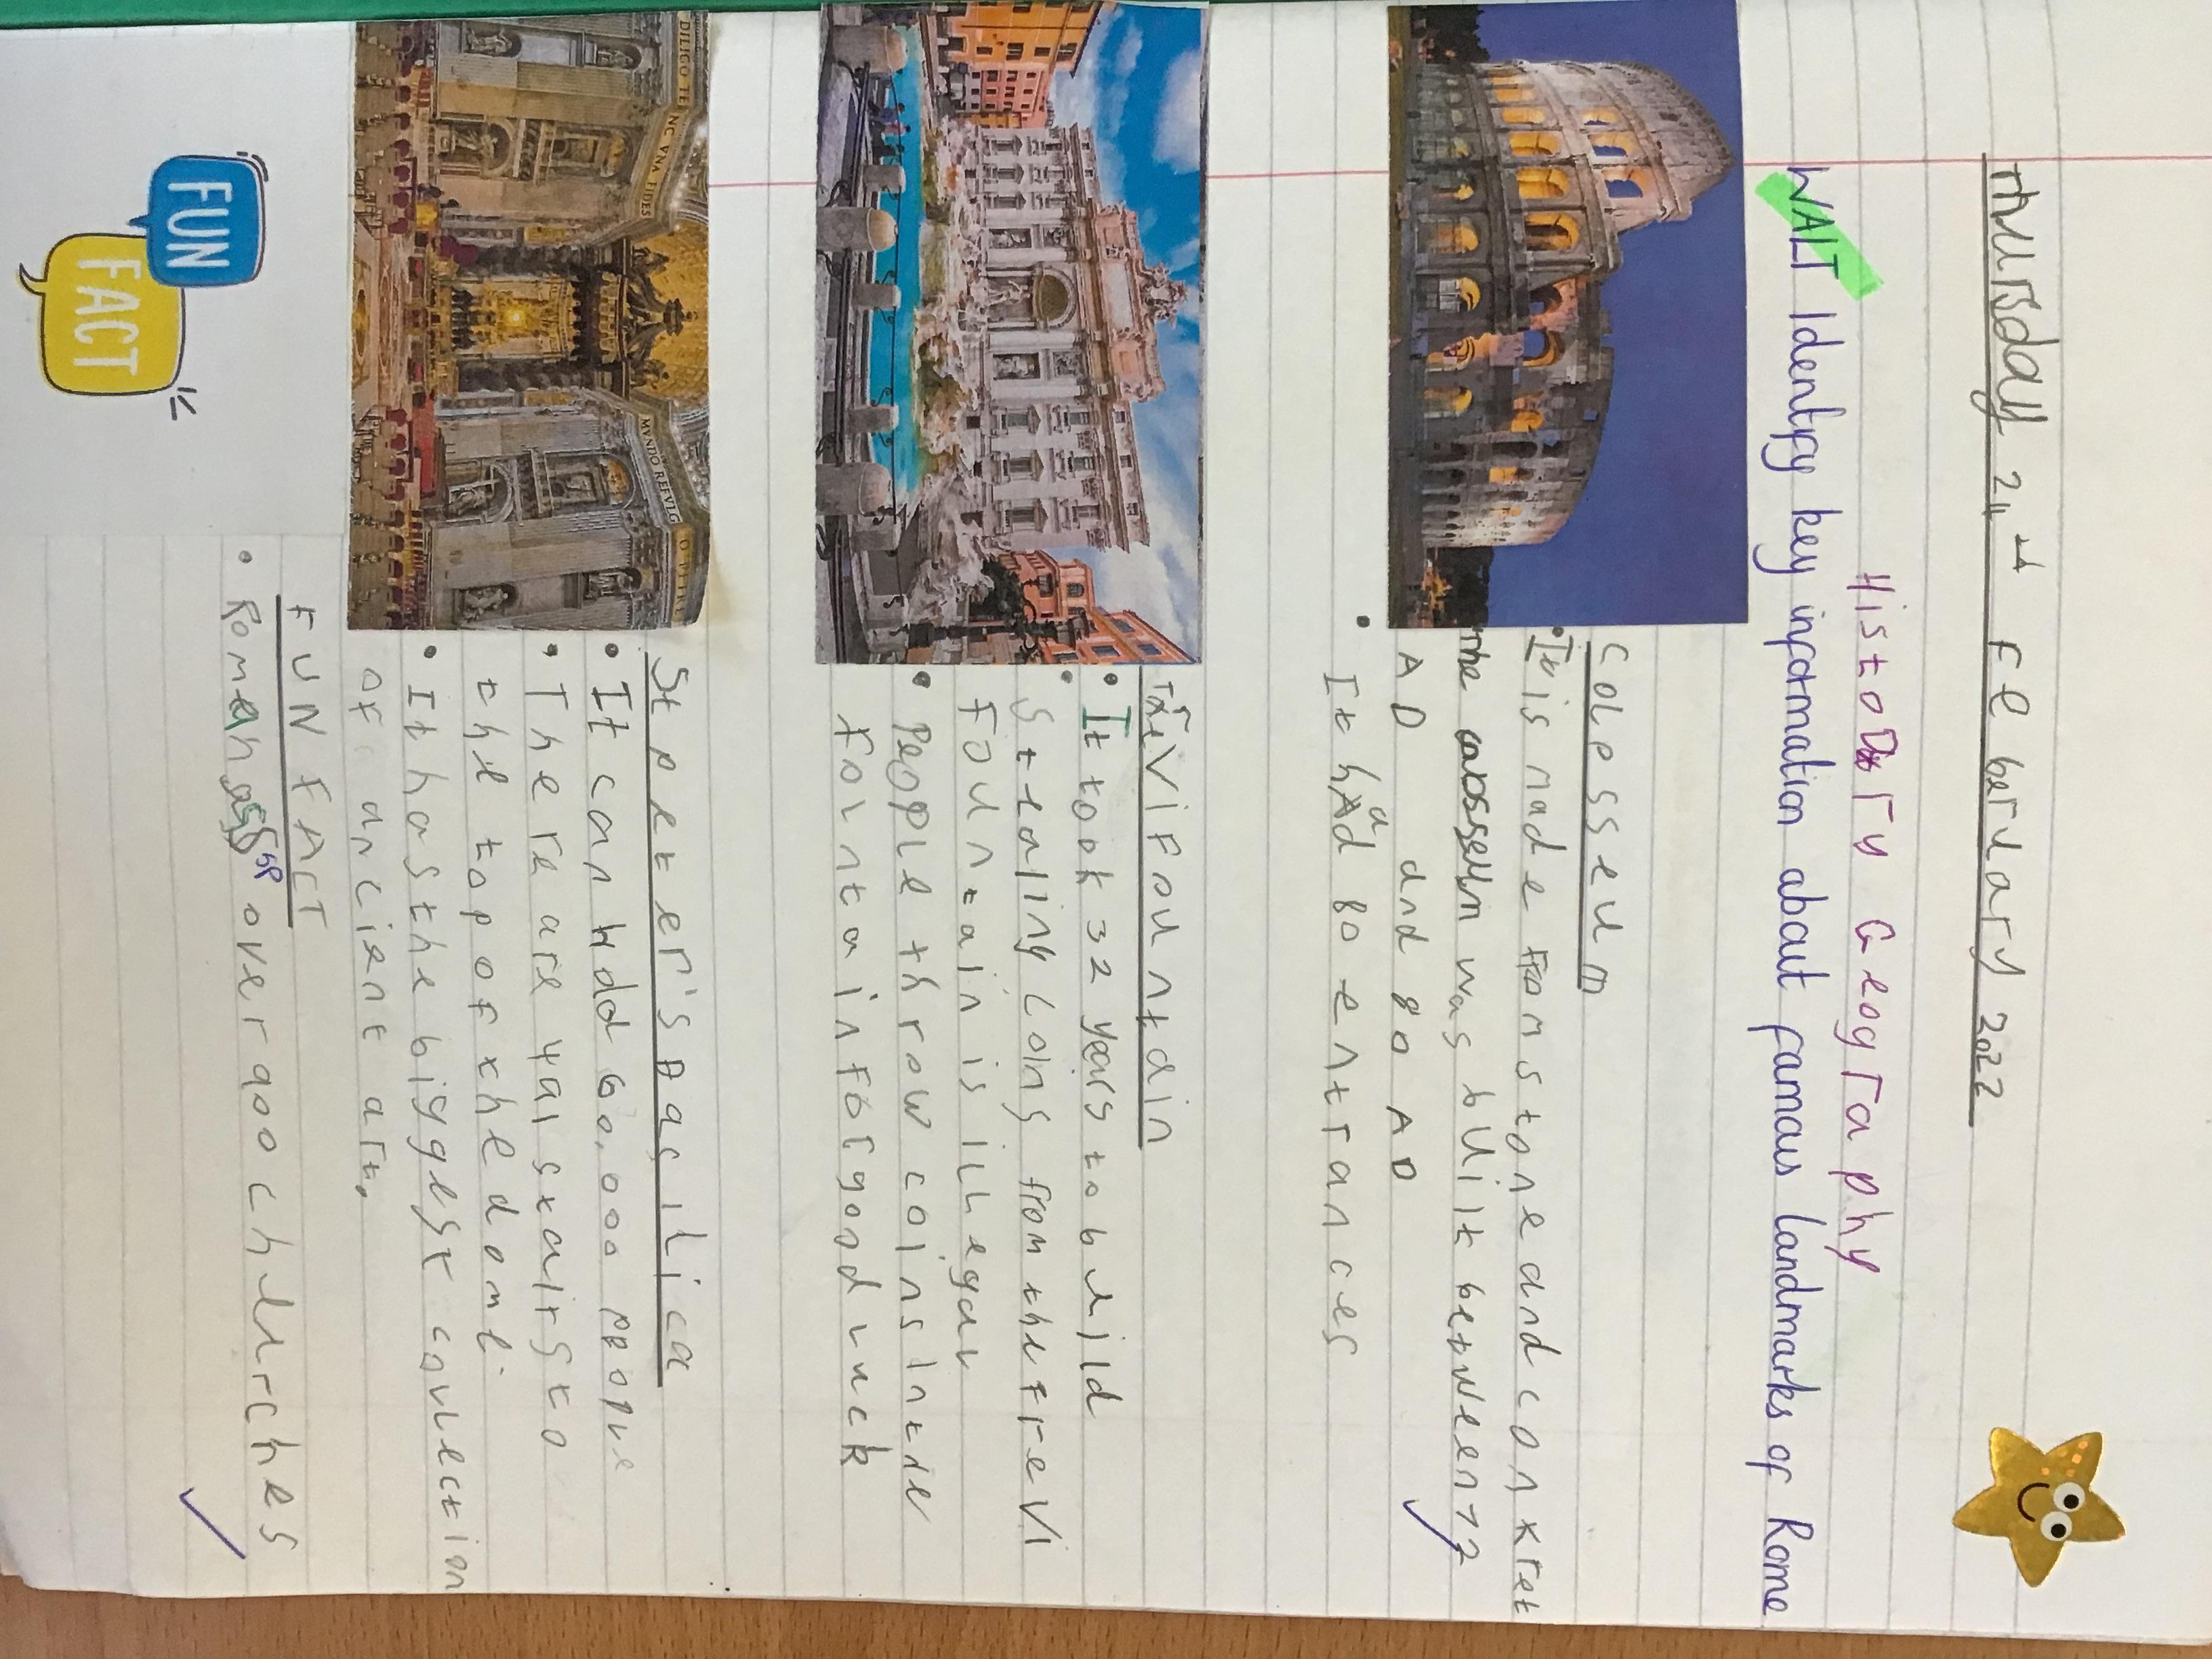 Thursday 24th February 2022
History Geography
WALT Identify key information about famous landmarks of Rome
Colesseum
• It is made from stone and conkret
The was built between 72
AD and 80 AD
• It had 80 entrances
Trevi Fountain
• It took 32 years to build
• Stealing coins from the trevi
fountain is illegal
• People throw coins in the
fountain for good luck
St peter's Basilica
• It can hold 60,000 people
• There are 491 stairs to
the top of the dome.
• It has the biggest collection
of ancient art.
FUN FACT
FUN FACT
• Rome has over 900 churches
DILIGO TE
NC VNA FIDES
MVNDO REFVLG